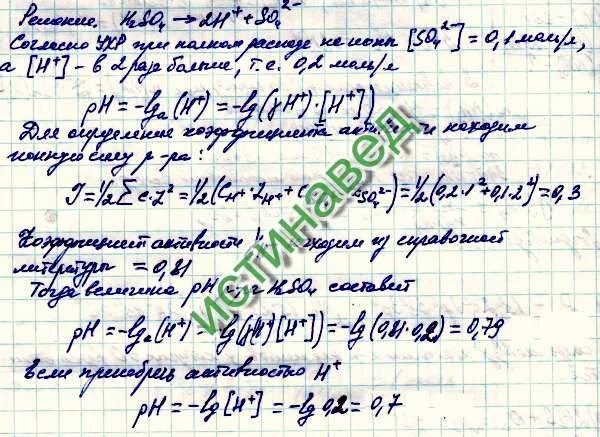 Решение. H₂SO₄ → 2H⁺ + SO₄²⁻
Согласно УХР при полном распаде на ионы [SO₄²⁻] = 0,1 моль/л,
а [H⁺] - в 2 раза больше, т.е. 0,2 моль/л
pH = -lg a (H⁺) = -lg (γH⁺)·[H⁺])
Для определения коэффициента находим
ионную силу р-ра:
J = 1/2 Σ c·z² = 1/2 (C_H⁺·Z_H⁺ + C SO₄²⁻) = 1/2 (0,2·1² + 0,1·2²) = 0,3
Коэффициент активности находим из справочной
литературы = 0,81
Тогда величина pH H₂SO₄ составит
pH = -lg a (H⁺) = -lg (γH⁺)[H⁺]) = -lg (0,81·0,2) = 0,79
Если пренебречь активностью H⁺
pH = -lg [H⁺] = -lg 0,2 = 0,7
Истинавед